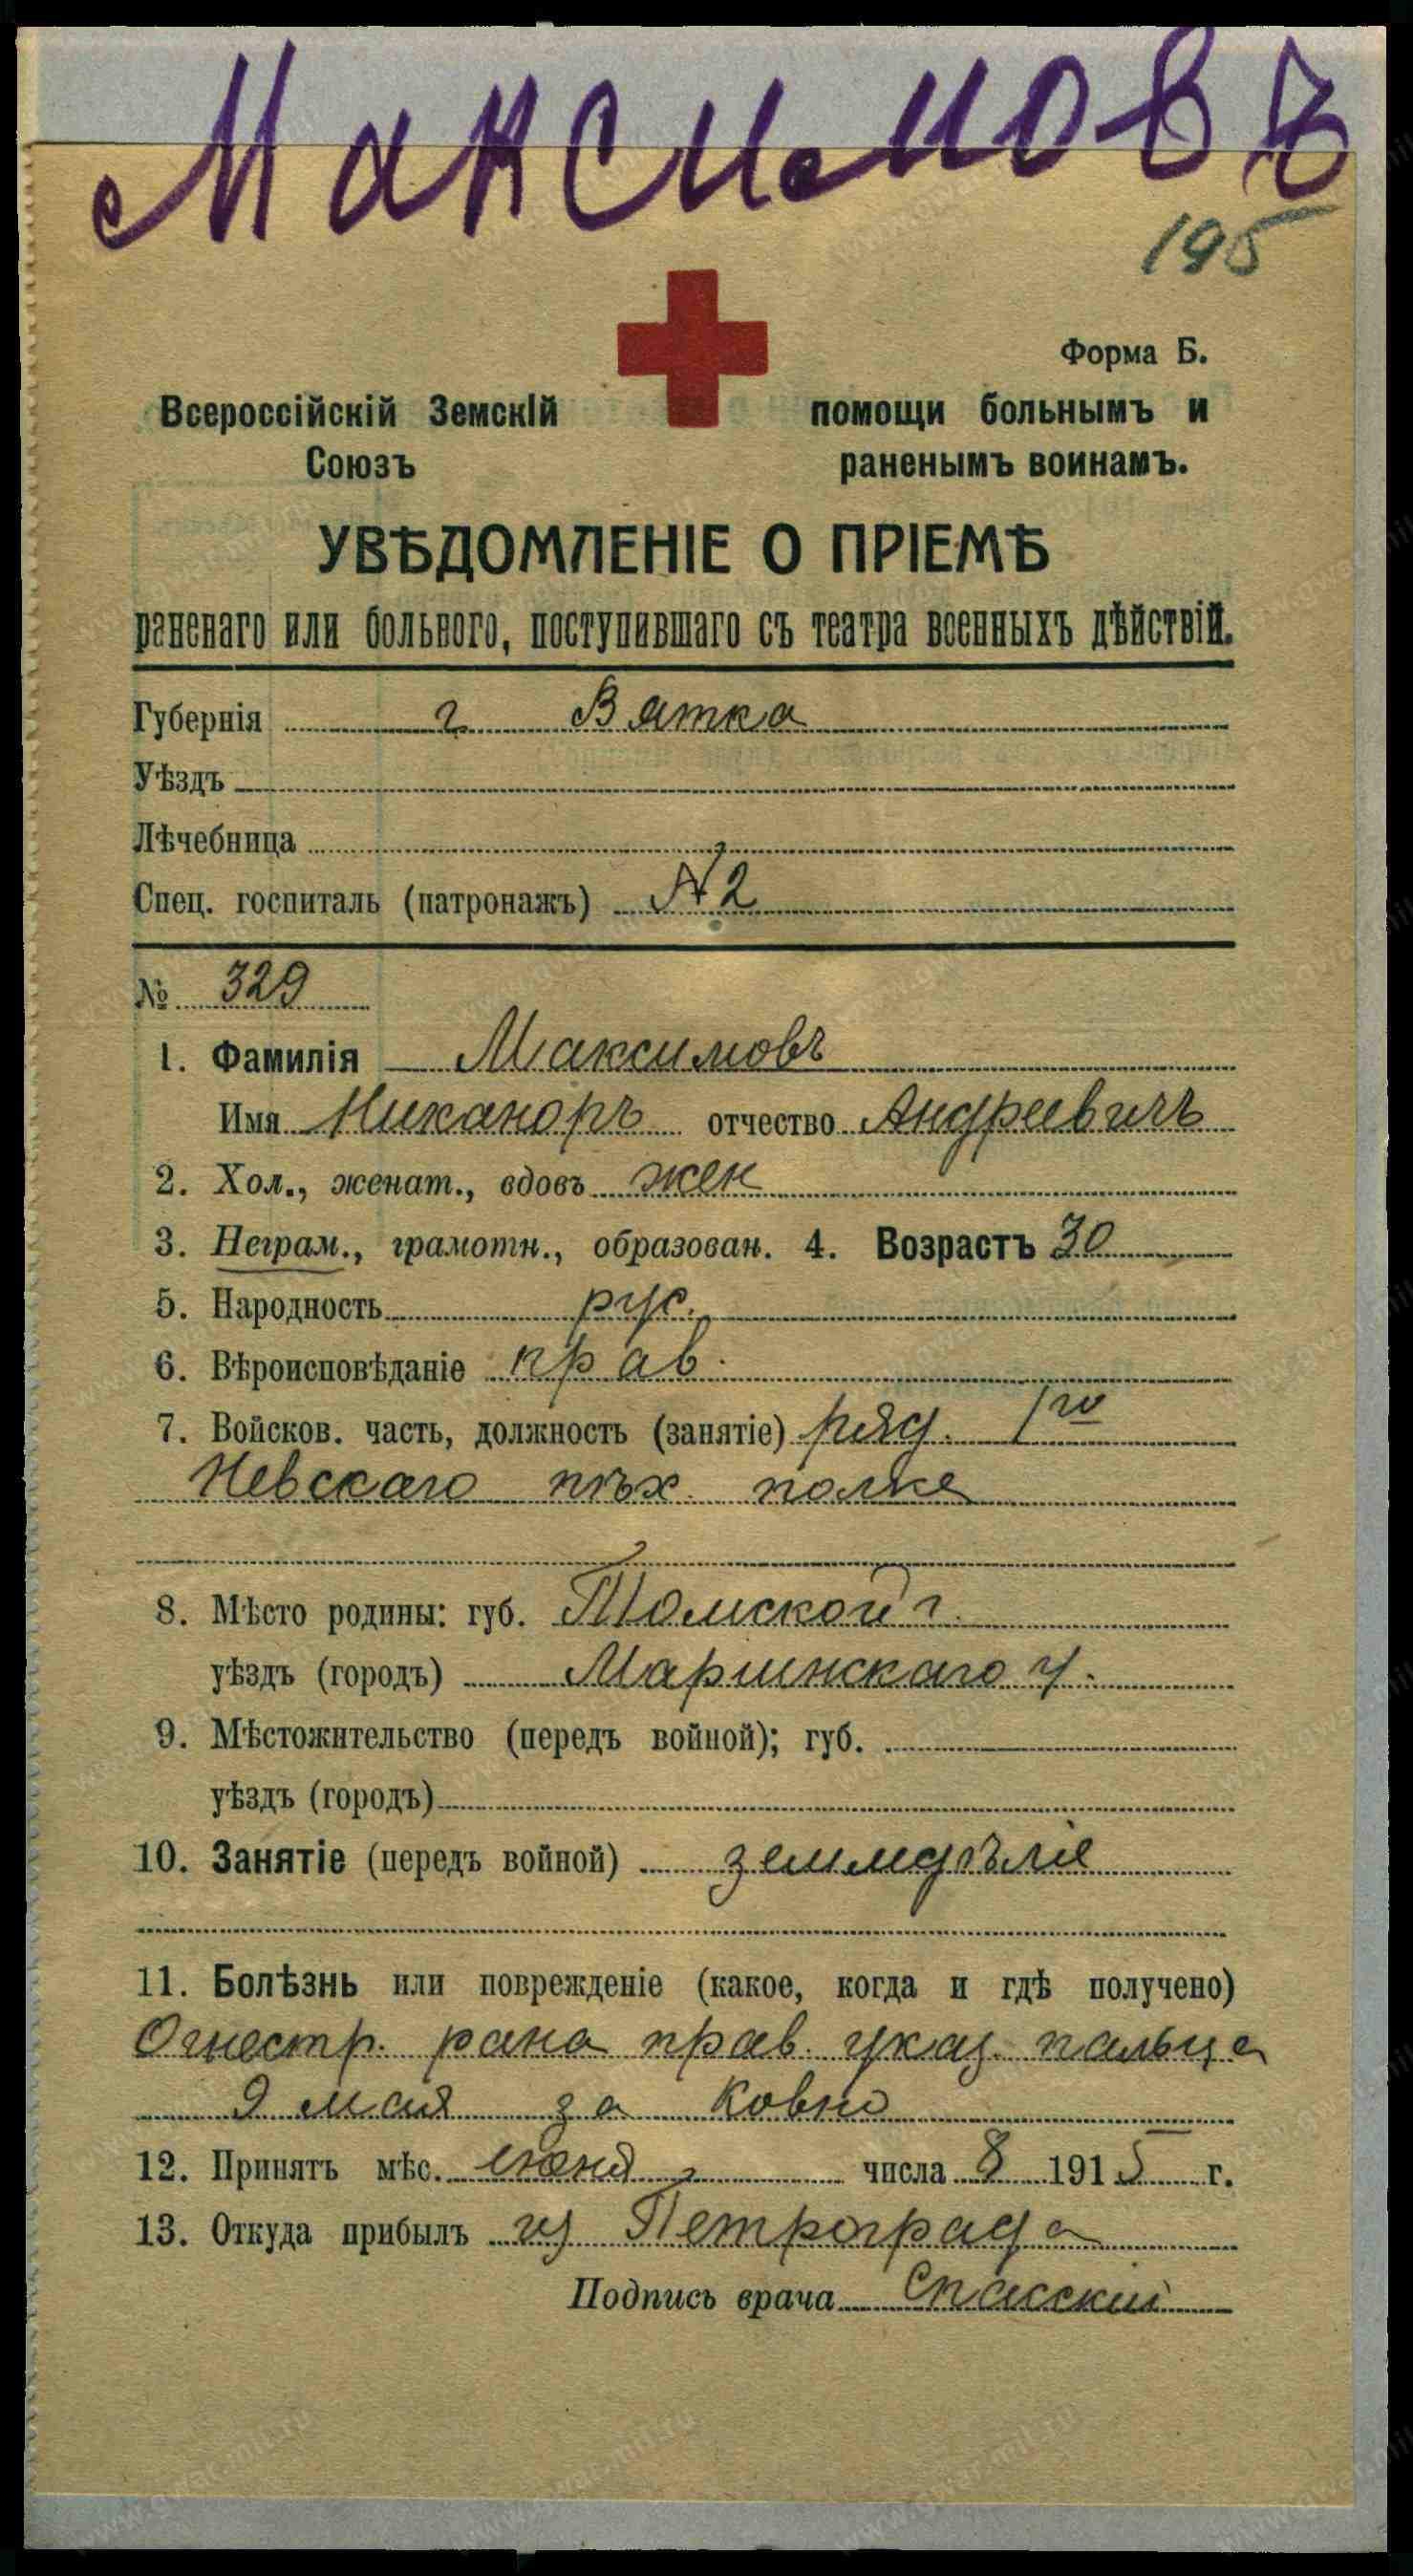 Максимовъ
195
Форма Б.
Всероссійскій Земскій
Союзъ
помощи больнымъ и
раненымъ воинамъ.
УВѢДОМЛЕНІЕ О ПРІЕМѢ
раненаго или больного, поступившаго съ театра военныхъ дѣйствій.
Губернія г Вятка
Уѣздъ
Лѣчебница
Спец. госпиталь (патронажъ) №2
№ 329
1. Фамилія Максимовъ
Имя Никаноръ отчество Андреевичъ
2. Хол., женат., вдовъ жен
3. Неграм., грамотн., образован. 4. Возрастъ 30
5. Народность рус.
6. Вѣроисповѣданіе прав.
7. Войсков. часть, должность (занятіе) ряд. 1го
Невскаго пѣх. полка
8. Мѣсто родины: губ. Томской г.
уѣздъ (городъ) Маріинскаго у.
9. Мѣстожительство (передъ войной); губ.
уѣздъ (городъ)
10. Занятіе (передъ войной) земледѣліе
11. Болѣзнь или поврежденіе (какое, когда и гдѣ получено)
Огнестр. рана прав. указ. пальца
9 мая за Ковно
12. Принятъ мѣс. іюня числа 8 1915 г.
13. Откуда прибылъ из Петрограда
Подпись врача Спасскій
www.gwar.mil.ru